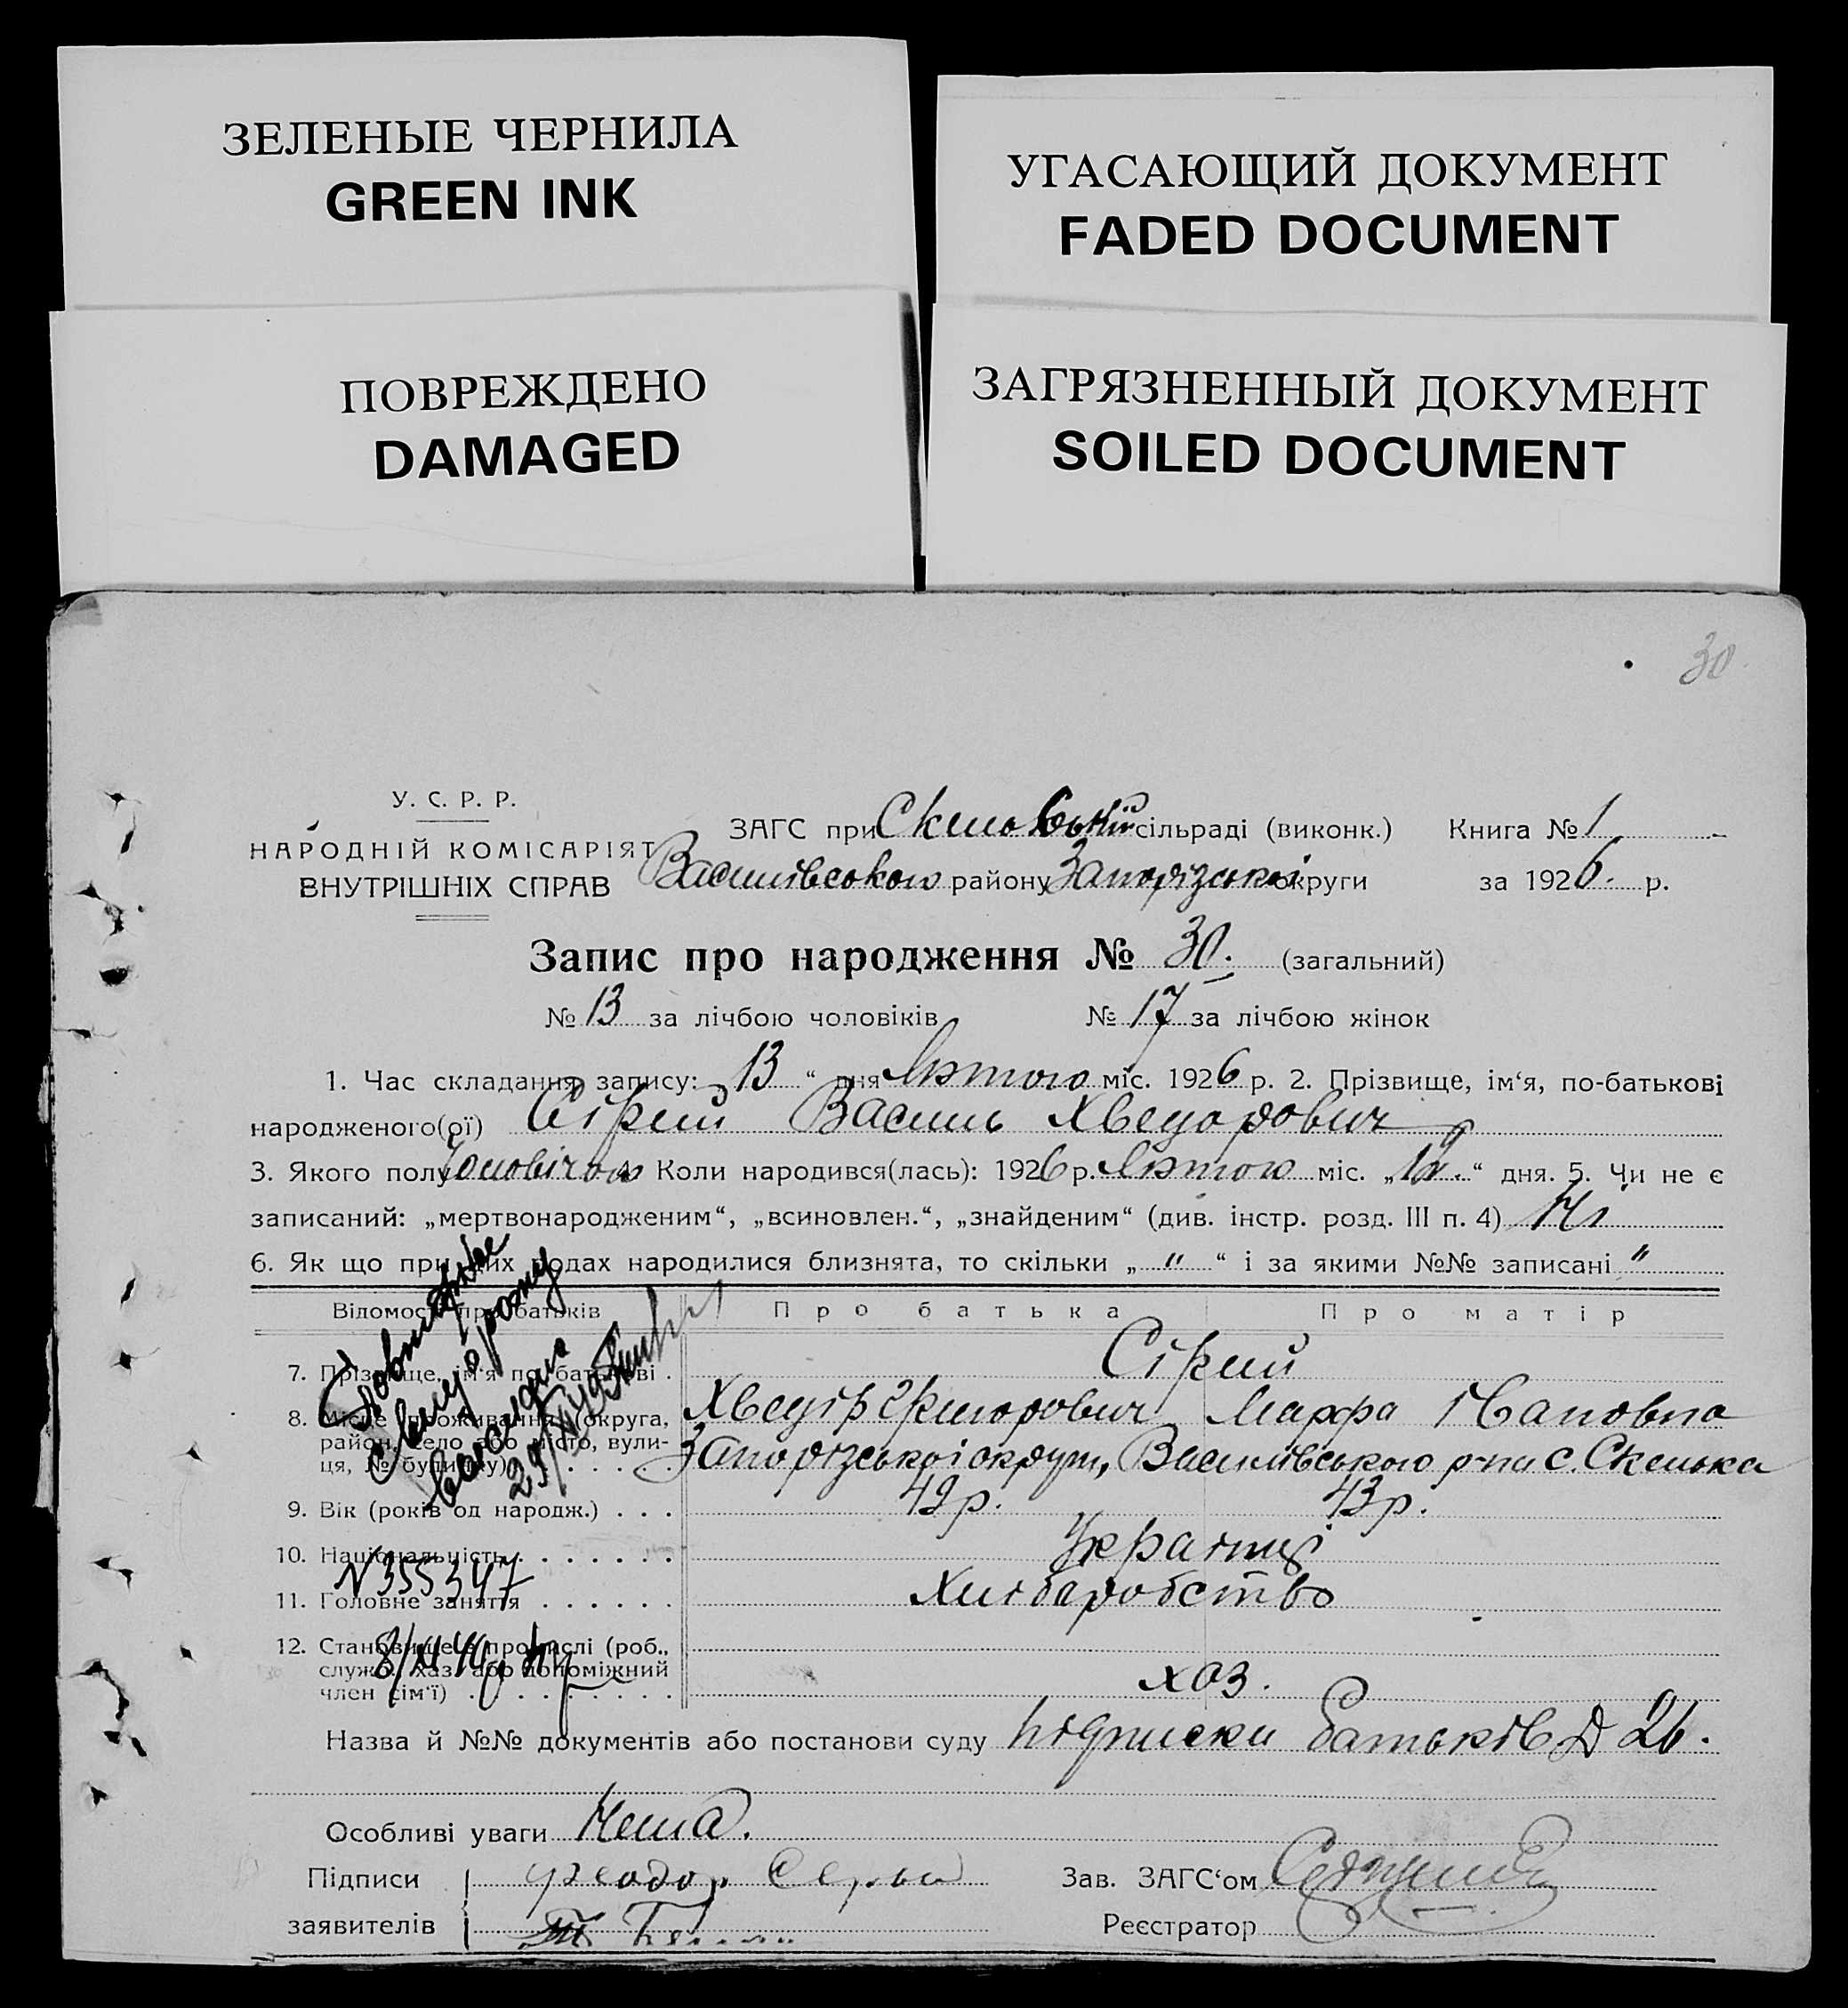 ЗЕЛЕНЫЕ ЧЕРНИЛА
GREEN INK
УГАСАЮЩИЙ ДОКУМЕНТ
FADED DOCUMENT
ПОВРЕЖДЕНО
DAMAGED
ЗАГРЯЗНЕННЫЙ ДОКУМЕНТ
SOILED DOCUMENT
30
У. С. Р. Р.
НАРОДНІЙ КОМІСАРІЯТ
ВНУТРІШНІХ СПРАВ
ЗАГС при Скельовській сільраді (виконк.) Книга № 1
Василівського району Запорізької округи за 1926. р.
Запис про народження № 30. (загальний)
№ 13 за лічбою чоловіків № 17 за лічбою жінок
1. Час складання запису: „ 13 “ дня Лютого міс. 1926 р. 2. Прізвище, ім‘я, по-батькові
народженого(ої) Сірий Василь Хведорович
3. Якого полу Чоловічого 4. Коли народився(лась): 1926 р. Лютого міс. „ “ дня. 5. Чи не є
записаний: „мертвонародженим“, „всиновлен.“, „знайденим“ (див. інстр. розд. III п. 4) Ні
6. Як що при цих родах народилися близнята, то скільки „ " “ і за якими №№ записані "
Відомості про батьків Про батька Про матір
7. Прізвище, ім‘я по-батькові . Сірий
Хведір Григорович Марфа Івановна
8. Місце проживання (округа, район, село або місто, вулиця, № будинку) Запорізької округи, Василівського р-на с. Скелька
9. Вік (років од народж.) . . . 42 р. 43 р.
10. Національність . . . . . . . Українці
11. Головне заняття . . . . . . Хліборобство
12. Становище в промислі (роб., служб., хаз. або допоміжний член сім‘ї) . . . . . . . . хоз.
N 355347
8/XI 46
Назва й №№ документів або постанови суду підписки батьків Д 26.
Особливі уваги Нема.
Підписи заявителів Феодор Серый
Зав. ЗАГС‘ом
Реєстратор